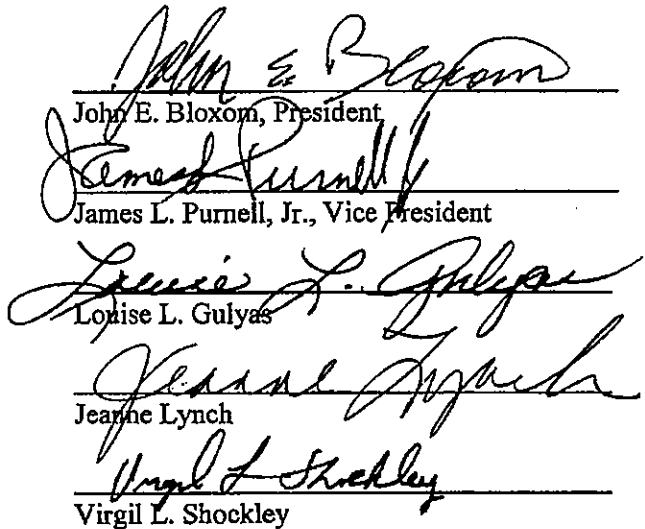 John E. Bloxom
John E. Bloxom, President
James L Purnell Jr
James L. Purnell, Jr., Vice President
Louise L. Gulyas
Louise L. Gulyas
Jeanne Lynch
Jeanne Lynch
Virgil L Shockley
Virgil L. Shockley